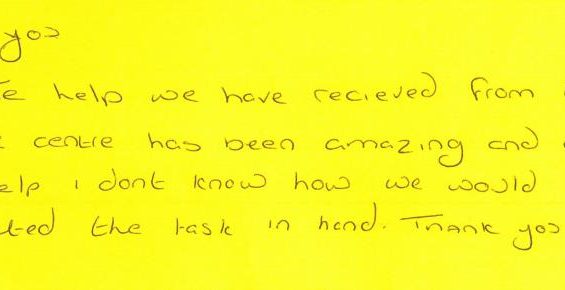 you
e help we have recieved from
centre has been amazing and
elp i dont know how we would
ted the task in hand. Thank you